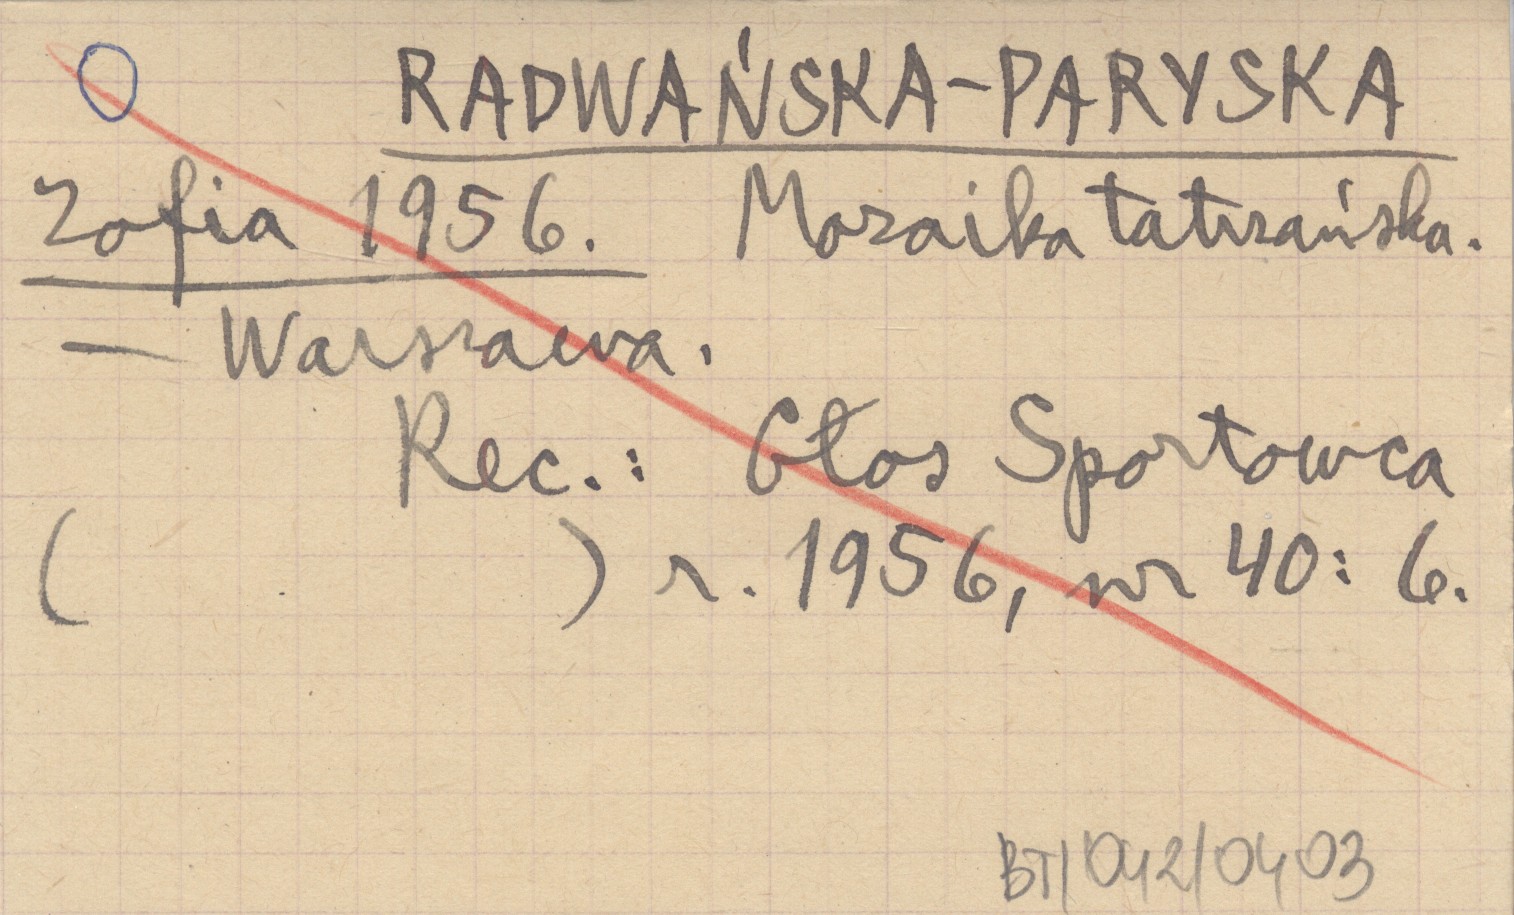 RADWAŃSKA-PARYSKA
Zofia 1956. Mozaika tatrzańska.
— Warszawa.
Rec.: Głos Sportowca
( ) r. 1956, nr 40: 6.
BT/042/0403